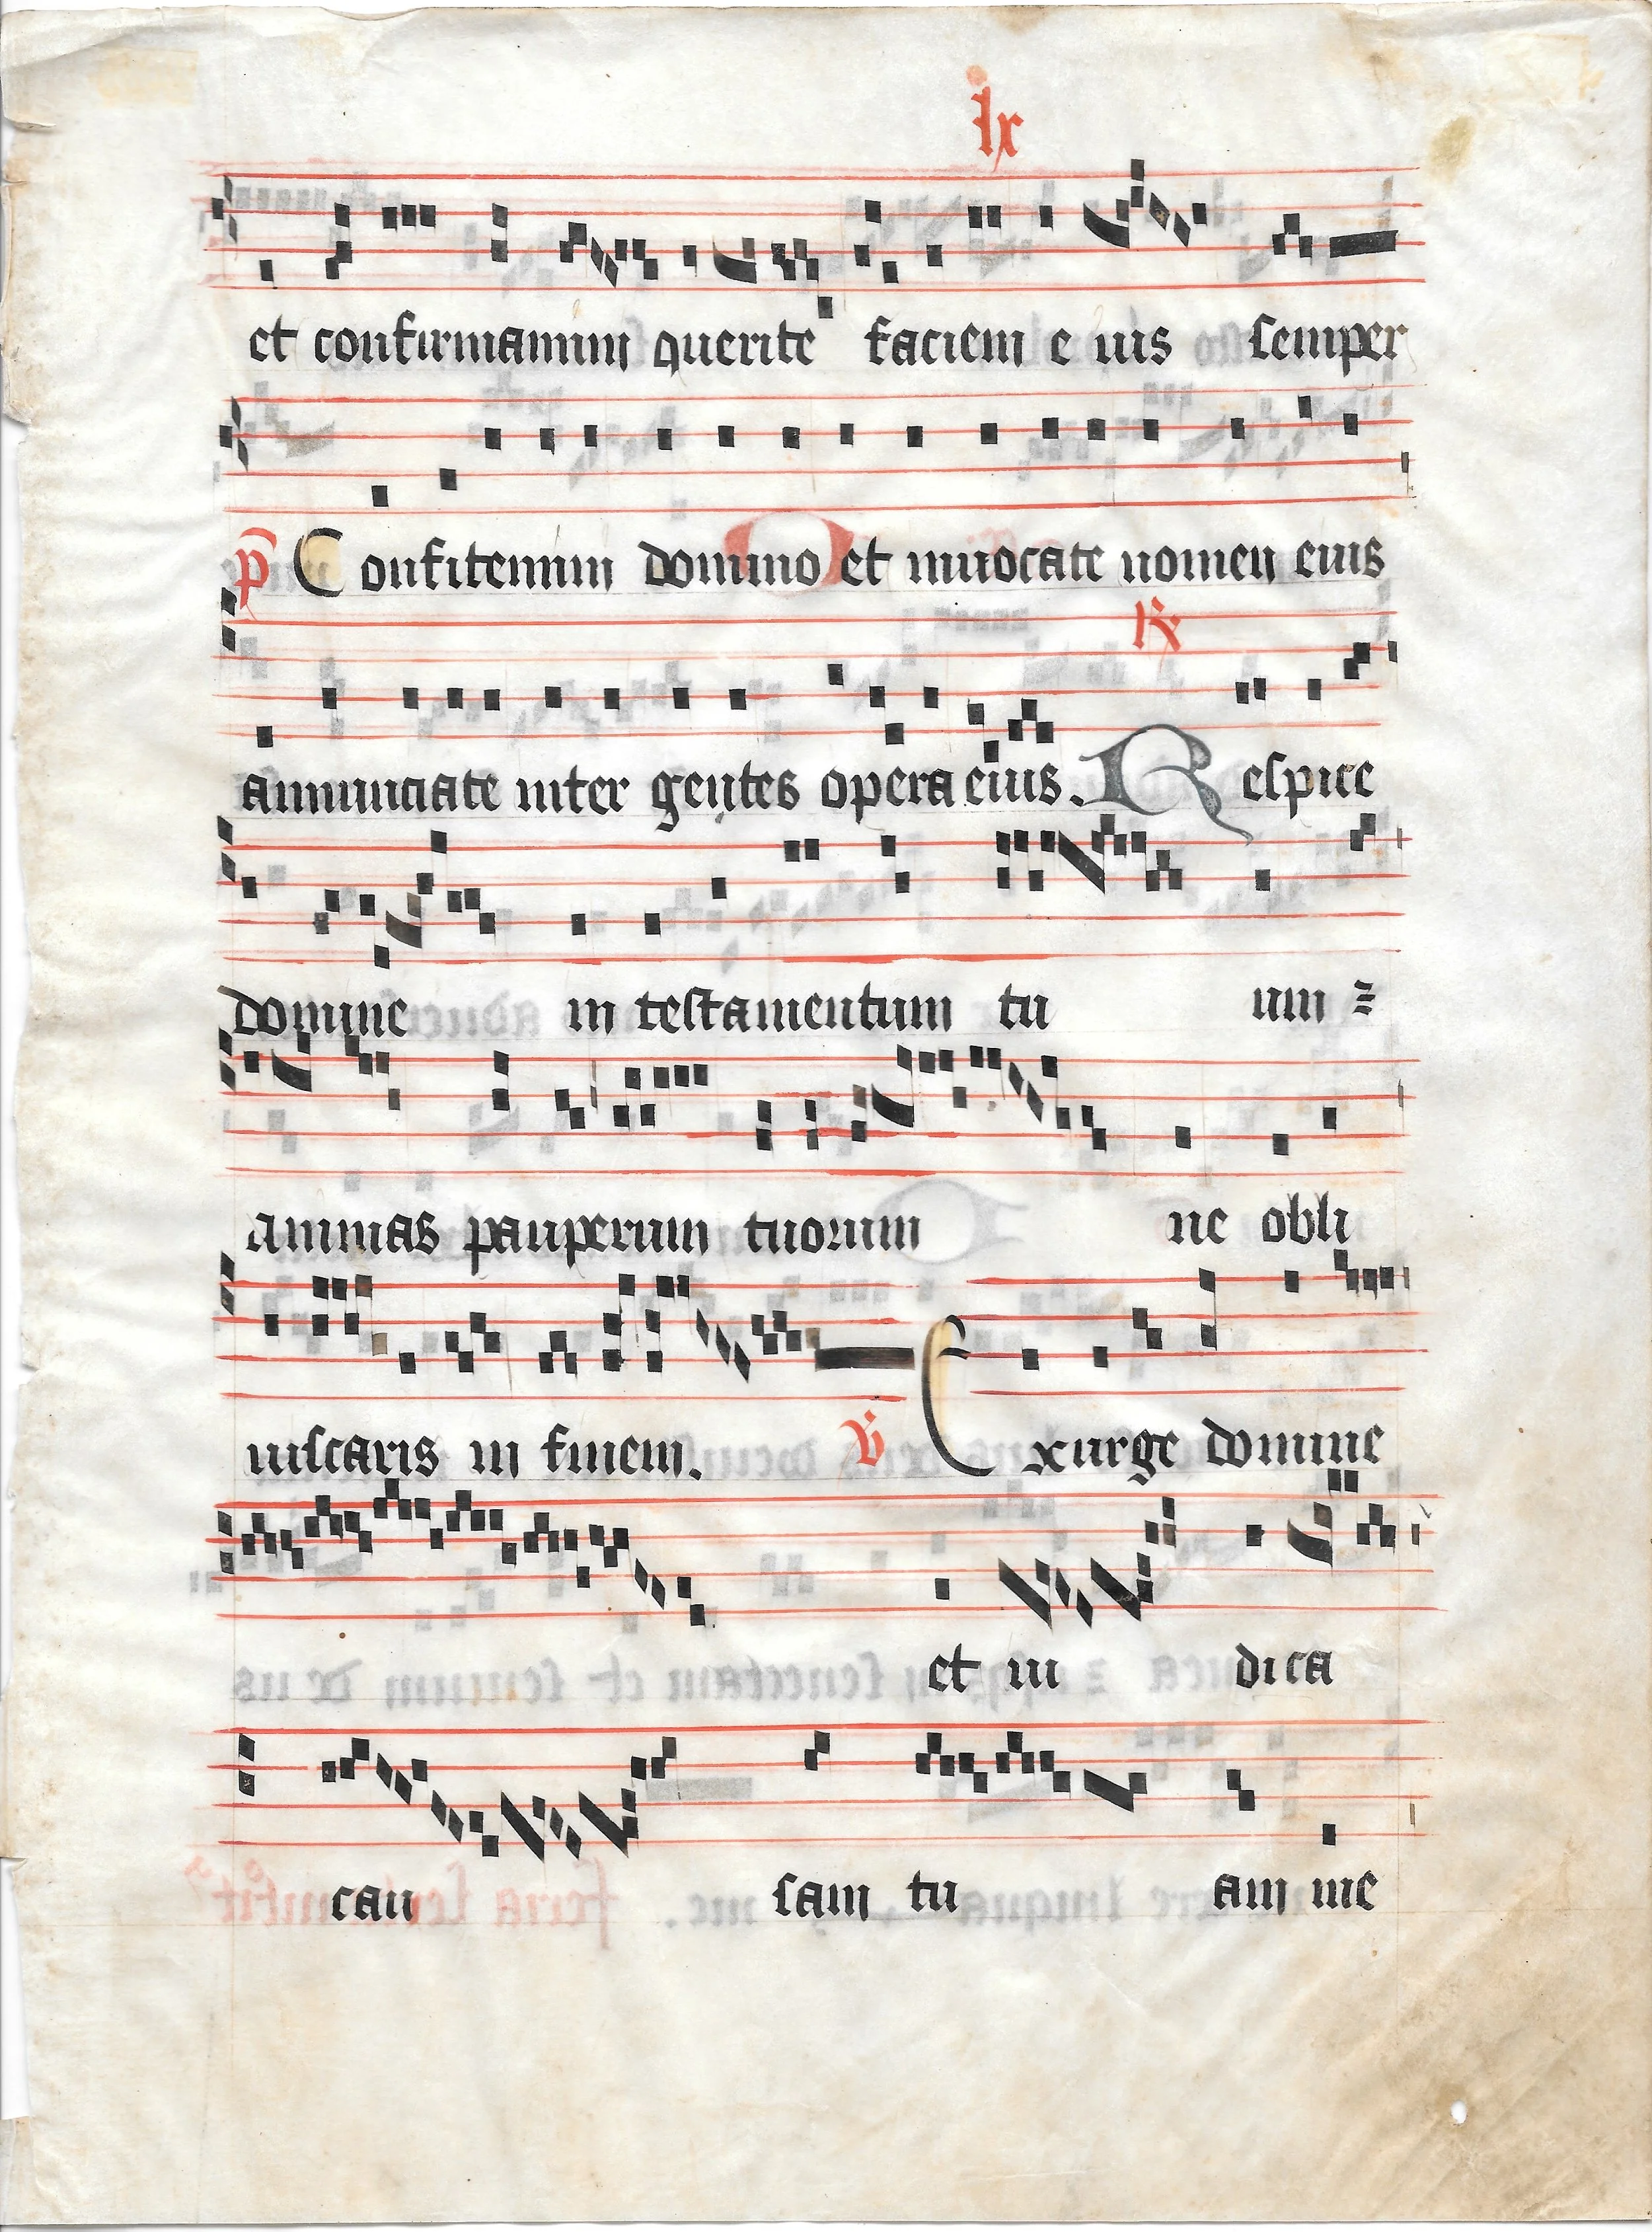 lx
et confirmamini querite faciem e ius semper
p Confitemini domino et inuocate nomen eius
annunciate inter gentes opera eius. R Respice
domine in testamentum tu um ⁊
animas pauperum tuorum ne obli
uiscaris in finem. V Exurge domine
et iu dica
cau sam tu am me